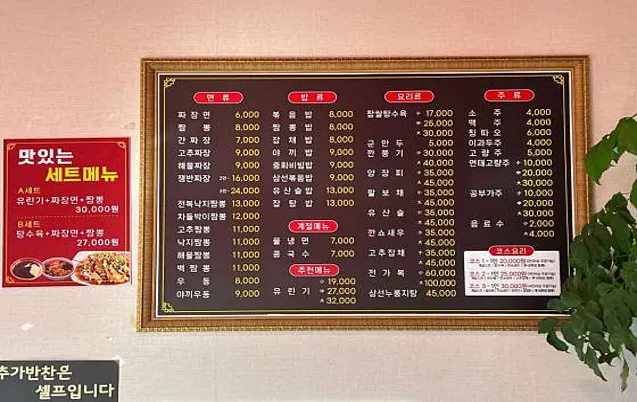 맛있는
세트메뉴
A세트
유린기+짜장면+짬뽕
30,000원
B세트
탕수육+짜장면+짬뽕
27,000원
추가반찬은
셀프입니다
면 류
짜장면 6,000
짬 뽕 8,000
간짜장 7,000
고추짜장 9,000
해물짜장 9,000
쟁반짜장 16,000
24,000
전복낙지짬뽕 13,000
차돌박이짬뽕 12,000
고추짬뽕 11,000
낙지짬뽕 11,000
해물짬뽕 11,000
백짬뽕 11,000
우 동 8,000
야끼우동 9,000
밥 류
볶음밥 8,000
짬뽕밥 8,000
잡채밥 8,000
야끼밥 8,000
중화비빔밥 9,000
삼선볶음밥 9,000
유산슬밥 13,000
잡탕밥 13,000
계절메뉴
물냉면 7,000
콩국수 7,000
추천메뉴
유린기 小 19,000
中 27,000
大 32,000
요리류
찹쌀탕수육 小 17,000
中 25,000
大 30,000
군만두 5,000
깐풍기 30,000
40,000
양장피 35,000
45,000
팔보채 35,000
45,000
유산슬 35,000
45,000
깐쇼새우 35,000
45,000
고추잡채 35,000
45,000
전가복 60,000
100,000
삼선누룽지탕 45,000
주 류
소 주 4,000
맥 주 4,000
칭따오 6,000
이과두주 4,000
고량주 5,000
연태고량주 10,000
20,000
공부가주 10,000
20,000
음료수 2,000
4,000
코스요리
코스 1 - 1인 20,000원
코스 2 - 1인 25,000원
코스 3 - 1인 30,000원